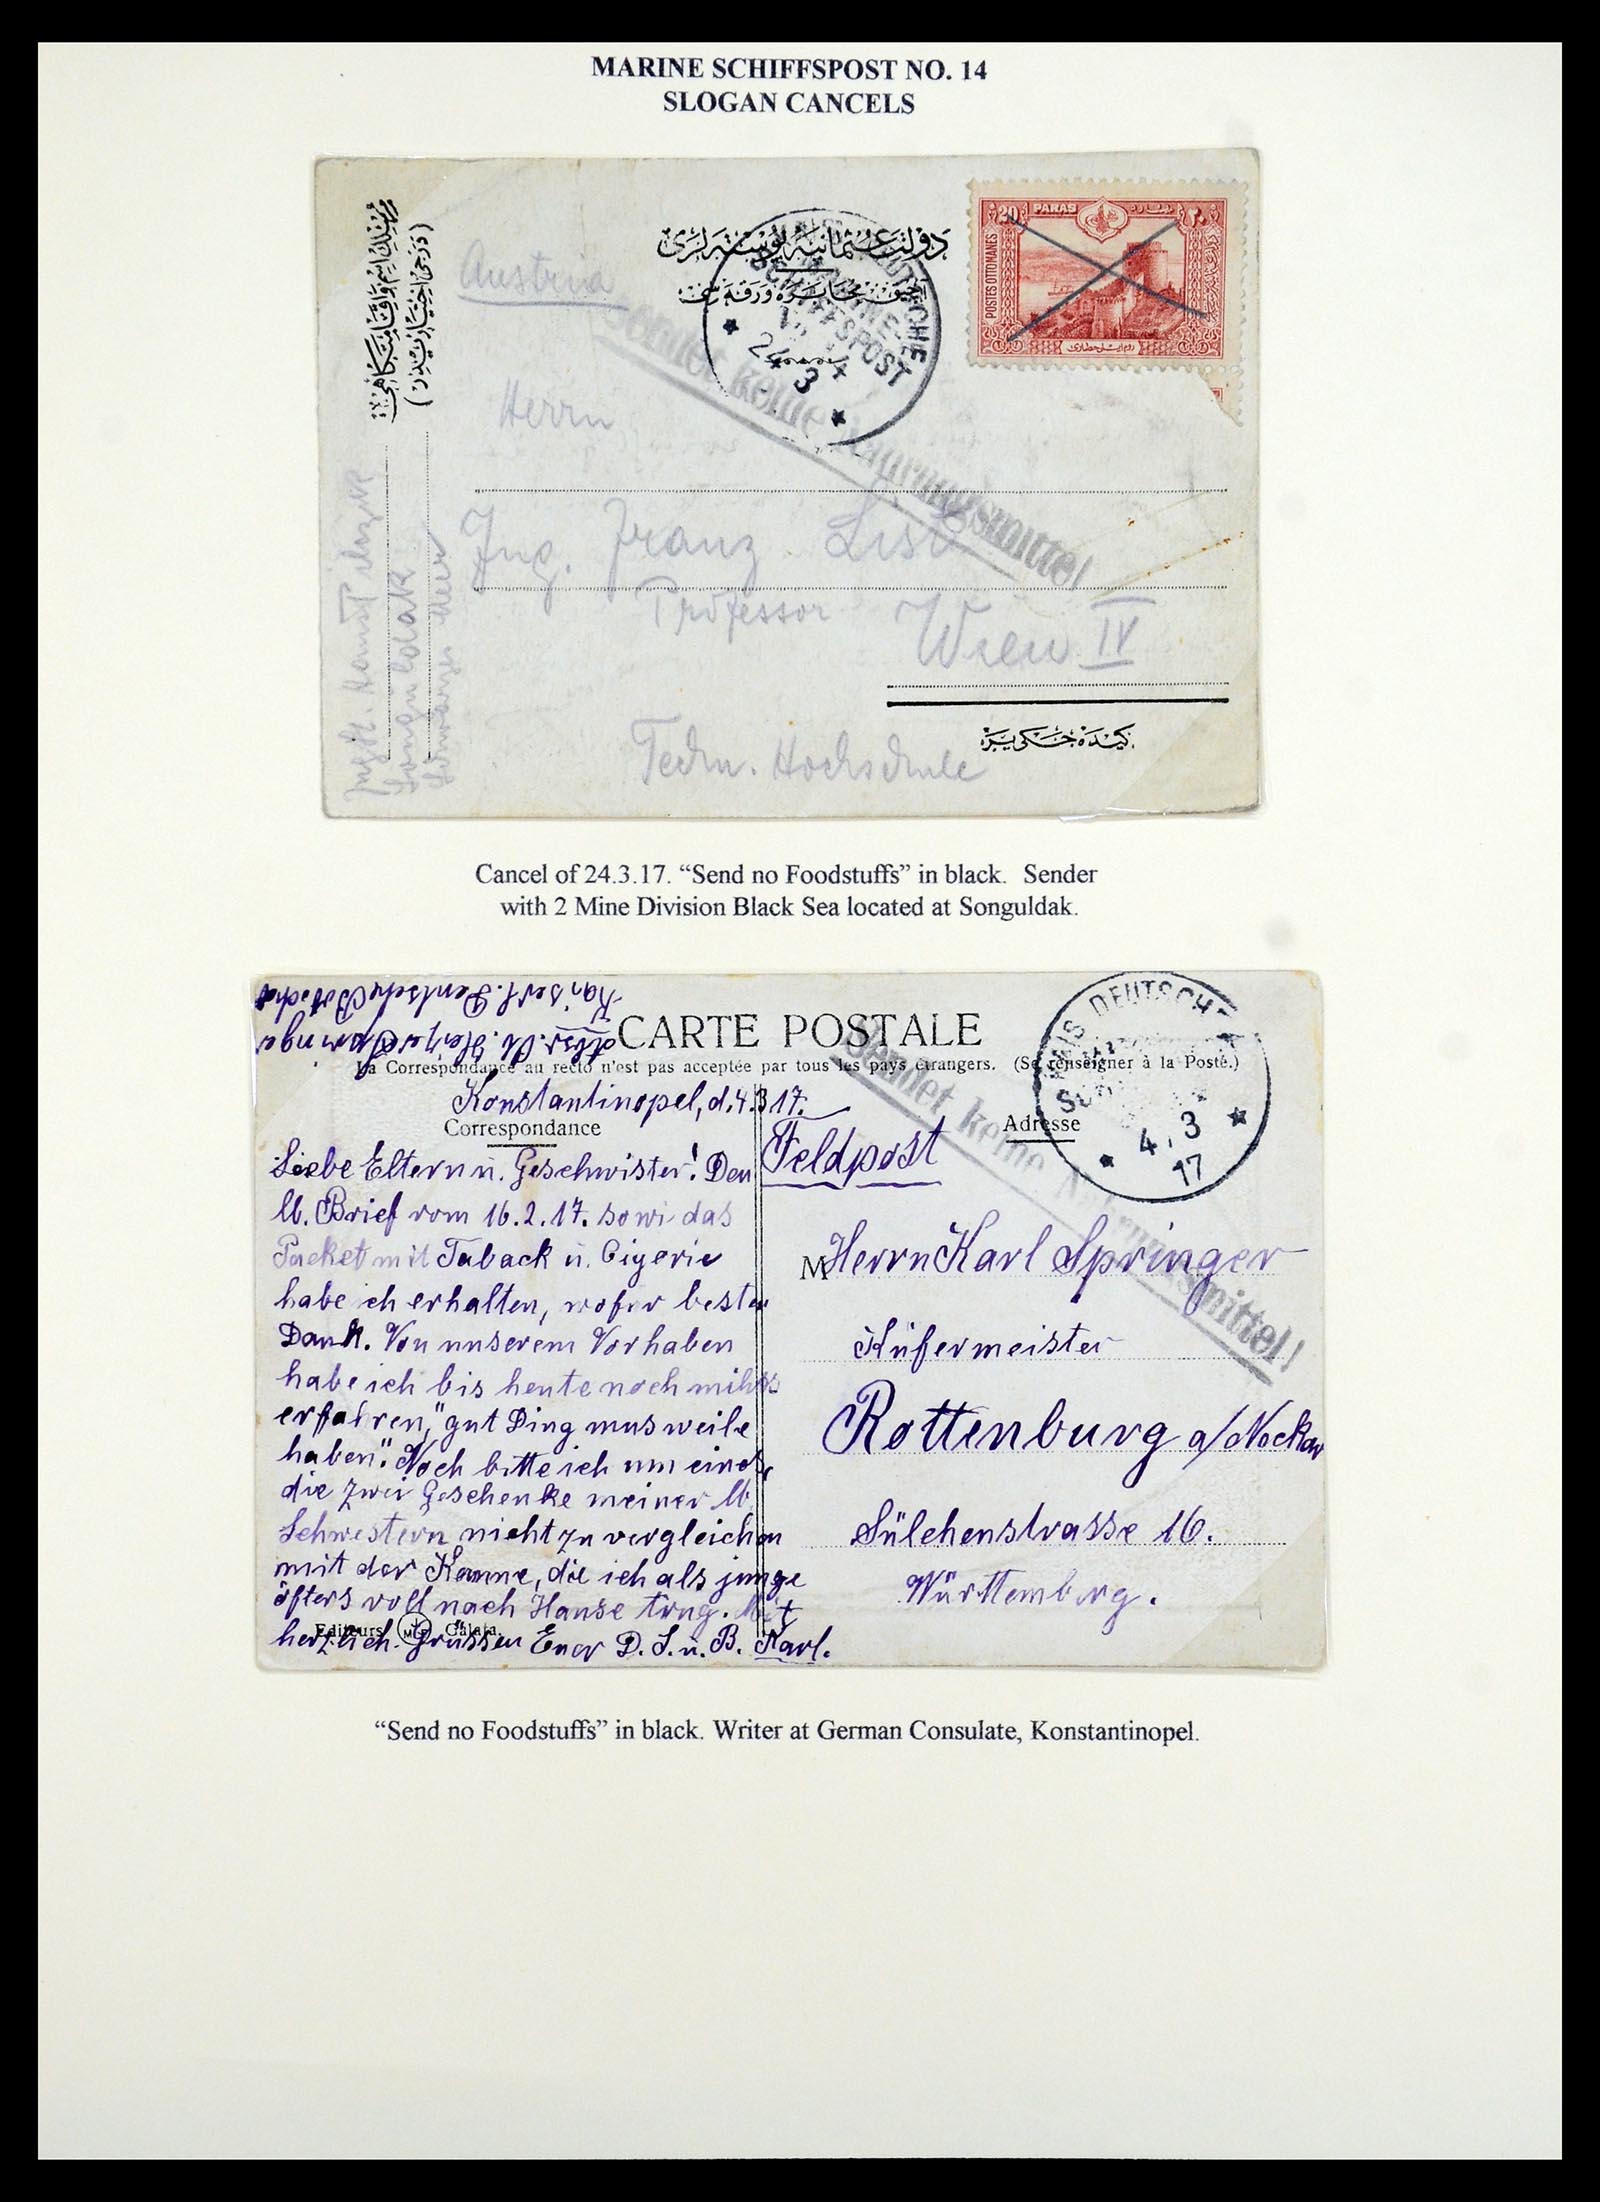 MARINE SCHIFFSPOST NO. 14
SLOGAN CANCELS
دولت عثمانیه پوسته لری
20 PARAS
POSTES OTTOMANES
Austria
SCHIFFSPOST
3
Sendet keine Nahrungsmittel
Herrn
Ing. Franz List
Professor
Wien IV
Techn. Hochschule
Songuldak
Schwarzes Meer
Cancel of 24.3.17. “Send no Foodstuffs” in black. Sender
with 2 Mine Division Black Sea located at Songuldak.
Kaiserl. Deutsche Botschaft
CARTE POSTALE
La Correspondance au recto n'est pas acceptée par tous les pays étrangers. (Se renseigner à la Poste.)
DEUTSCH
4.3
17
Sendet keine Nahrungsmittel!
Konstantinopel, d. 4.3.17.
Correspondance
Adresse
Feldpost
Liebe Eltern u. Geschwister! Den
lb. Brief vom 16.2.17. sowi das
Packet mit Taback u. Cigerie
habe ich erhalten, wofür besten
Dank. Von unserem Vorhaben
habe ich bis heute noch
erfahren, "gut Ding mus weile
haben". Noch bitte ich um
die zwei Geschenke meiner lb.
Schwestern nicht zu vergleichen
mit der Kanne, die ich als junge
öfters voll nach Hause trug. Mit
herzlich. Grüssen Euer D. S. u. B. Karl.
Editeurs Galata.
M Herrn Karl Springer
Küfermeister
Rottenburg a/Neckar
Sülchenstrasse 16.
Württemberg.
“Send no Foodstuffs” in black. Writer at German Consulate, Konstantinopel.